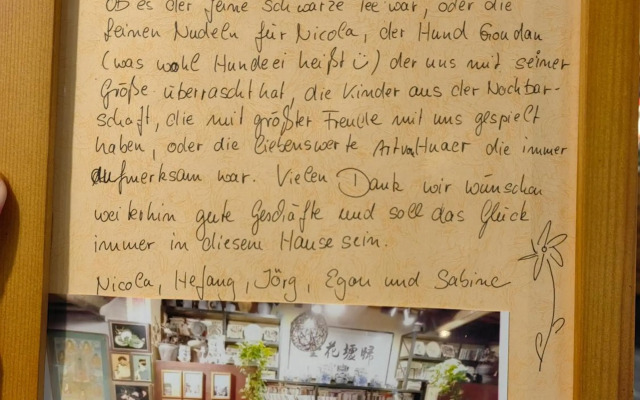 Ob es der feine Schwarze Tee war, oder die
feinen Nudeln für Nicola, der Hund Goudan
(was wohl Hundeei heißt ☺) der uns mit seiner
Größe überrascht hat, die Kinder aus der Nachbar-
schaft, die mit größter Freude mit uns gespielt
haben, oder die liebenswerte Art von Huaer die immer
aufmerksam war. Vielen Dank wir wünschen
weiterhin gute Geschäfte und soll das Glück
immer in diesem Hause sein.
Nicola, Hefang, Jörg, Egon und Sabine